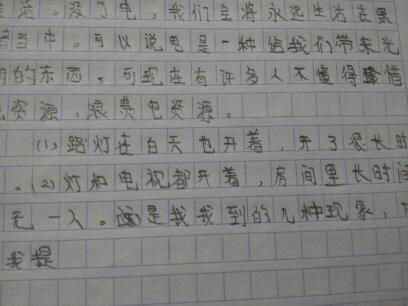 活。没了电,我们会将永远生活在黑
暗当中。可以说电是一种给我们带来光
明的东西。可现在有许多人不懂得珍惜
电资源,浪费电资源。
(1)路灯在白天也开着,开了很长时
。(2)灯和电视都开着,房间里长时间
无一人。这是我找到的几种现象,
我提